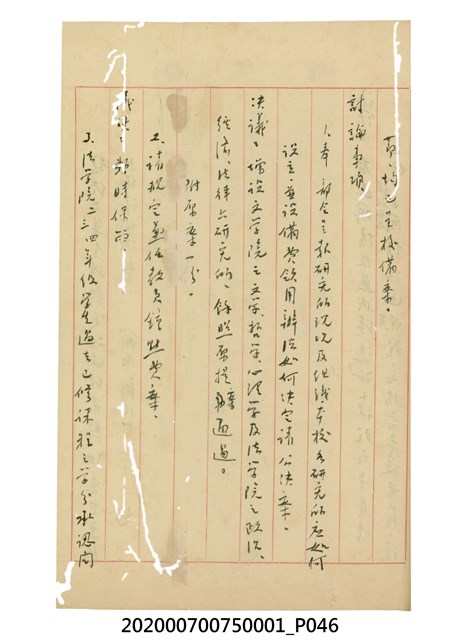 節，均已呈校備案。
討論事項
1.奉 部令之報研究所現況及組織本校各研究所應如何
設立並設備費飲用辦法如何決定請公決案。
決議：增設文學院之文學、哲學、心理學及法學院之政治、
經濟、法律六研究所、餘照原提案通過。
附原案一份。
2.請規定兼任教員鐘點費案。
議決：類時保留
3.法學院二三四年級學生過去已修課程之學分承認問
202000700750001_P046